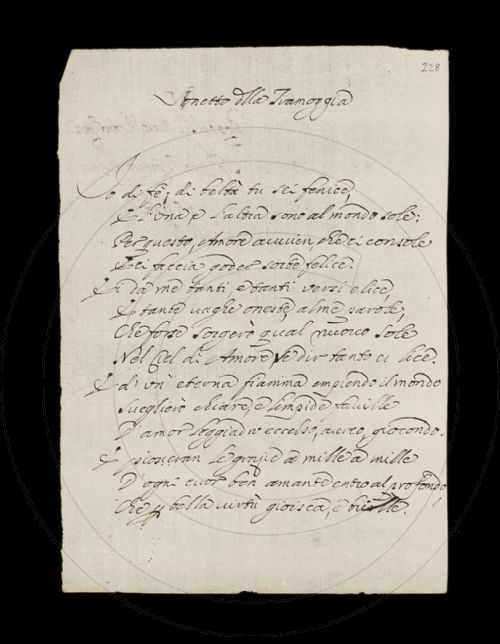 228
Sonetto della Tramoggia
Io di fè, di beltà tu sei fenice,
E l'una e l'altra sono al mondo sole:
Per questo, Amore avvien, che ci console
E ci faccia goder sorte felice.
E da me tanti e tanti versi elice,
E tante vaghe oneste, alme parole,
Che forse sorgerò qual nuovo sole
Nel Ciel di Amore, se dir tanto ci lice.
E d'un' eterna fiamma empiendo il mondo
Sveglierò chiare, e limpide faville
D'amor leggiadro eccelso, aureo, giocondo.
E pioveran le grazie a mille a mille
D'ogni cuor ben amante entro al profondo,
Che bella virtù gioisca, e brille.